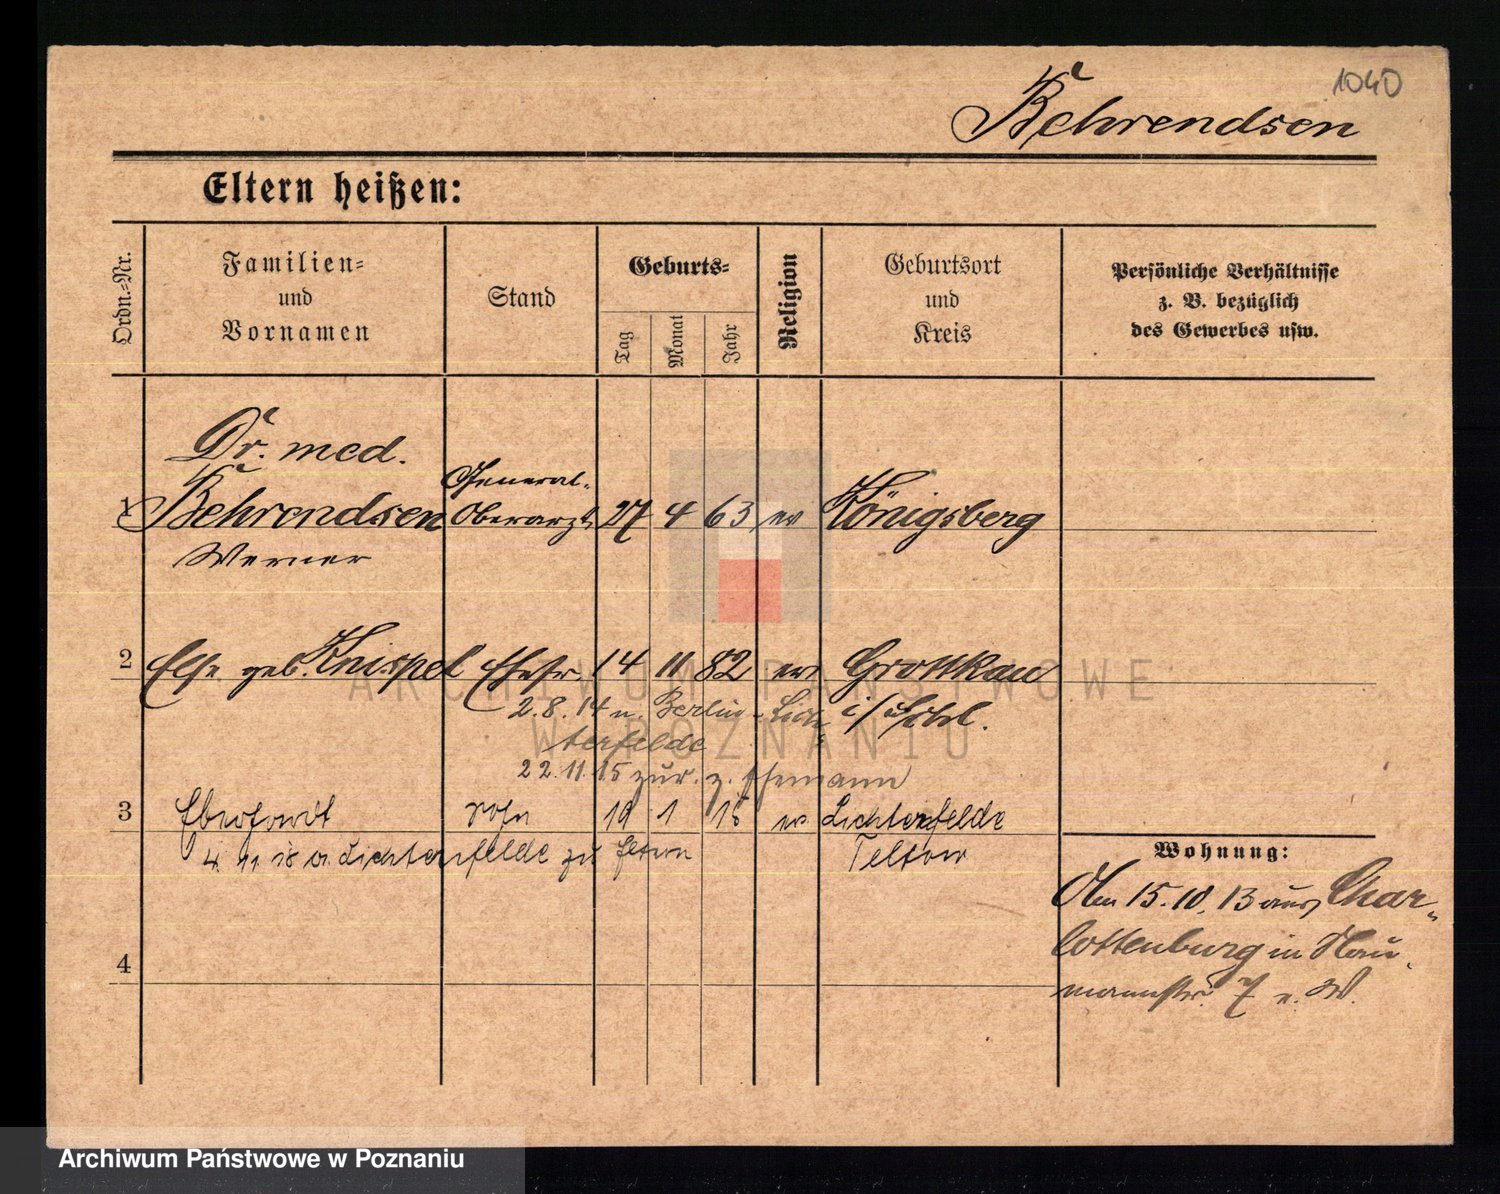 1040
Behrendsen
Eltern heißen:
Ordn.=Nr.
Familien=
und
Vornamen
Stand
Geburts=
Tag
Monat
Jahr
Religion
Geburtsort
und
Kreis
Persönliche Verhältnisse
z. B. bezüglich
des Gewerbes usw.
Dr. med.
1 Behrendsen General- Oberarzt 27 4 63 ev Königsberg
Werner
2 Else geb. Knispel Ehefr. 14 11 82 ev Grottkau
i/Schl.
2.8.14 n. Berlin-Lich
terfelde
22.11.15 zur. z. Ehemann
3 Eberhardt Sohn 19 1 15 ev Lichterfelde
4 11 15 a Lichterfelde zu Eltern Teltow
Wohnung:
Am 15.10.13 aus Char-
lottenburg in Nau-
mannstr. 7 n. W.
4
ARCHIWUM PAŃSTWOWE
W POZNANIU
Archiwum Państwowe w Poznaniu